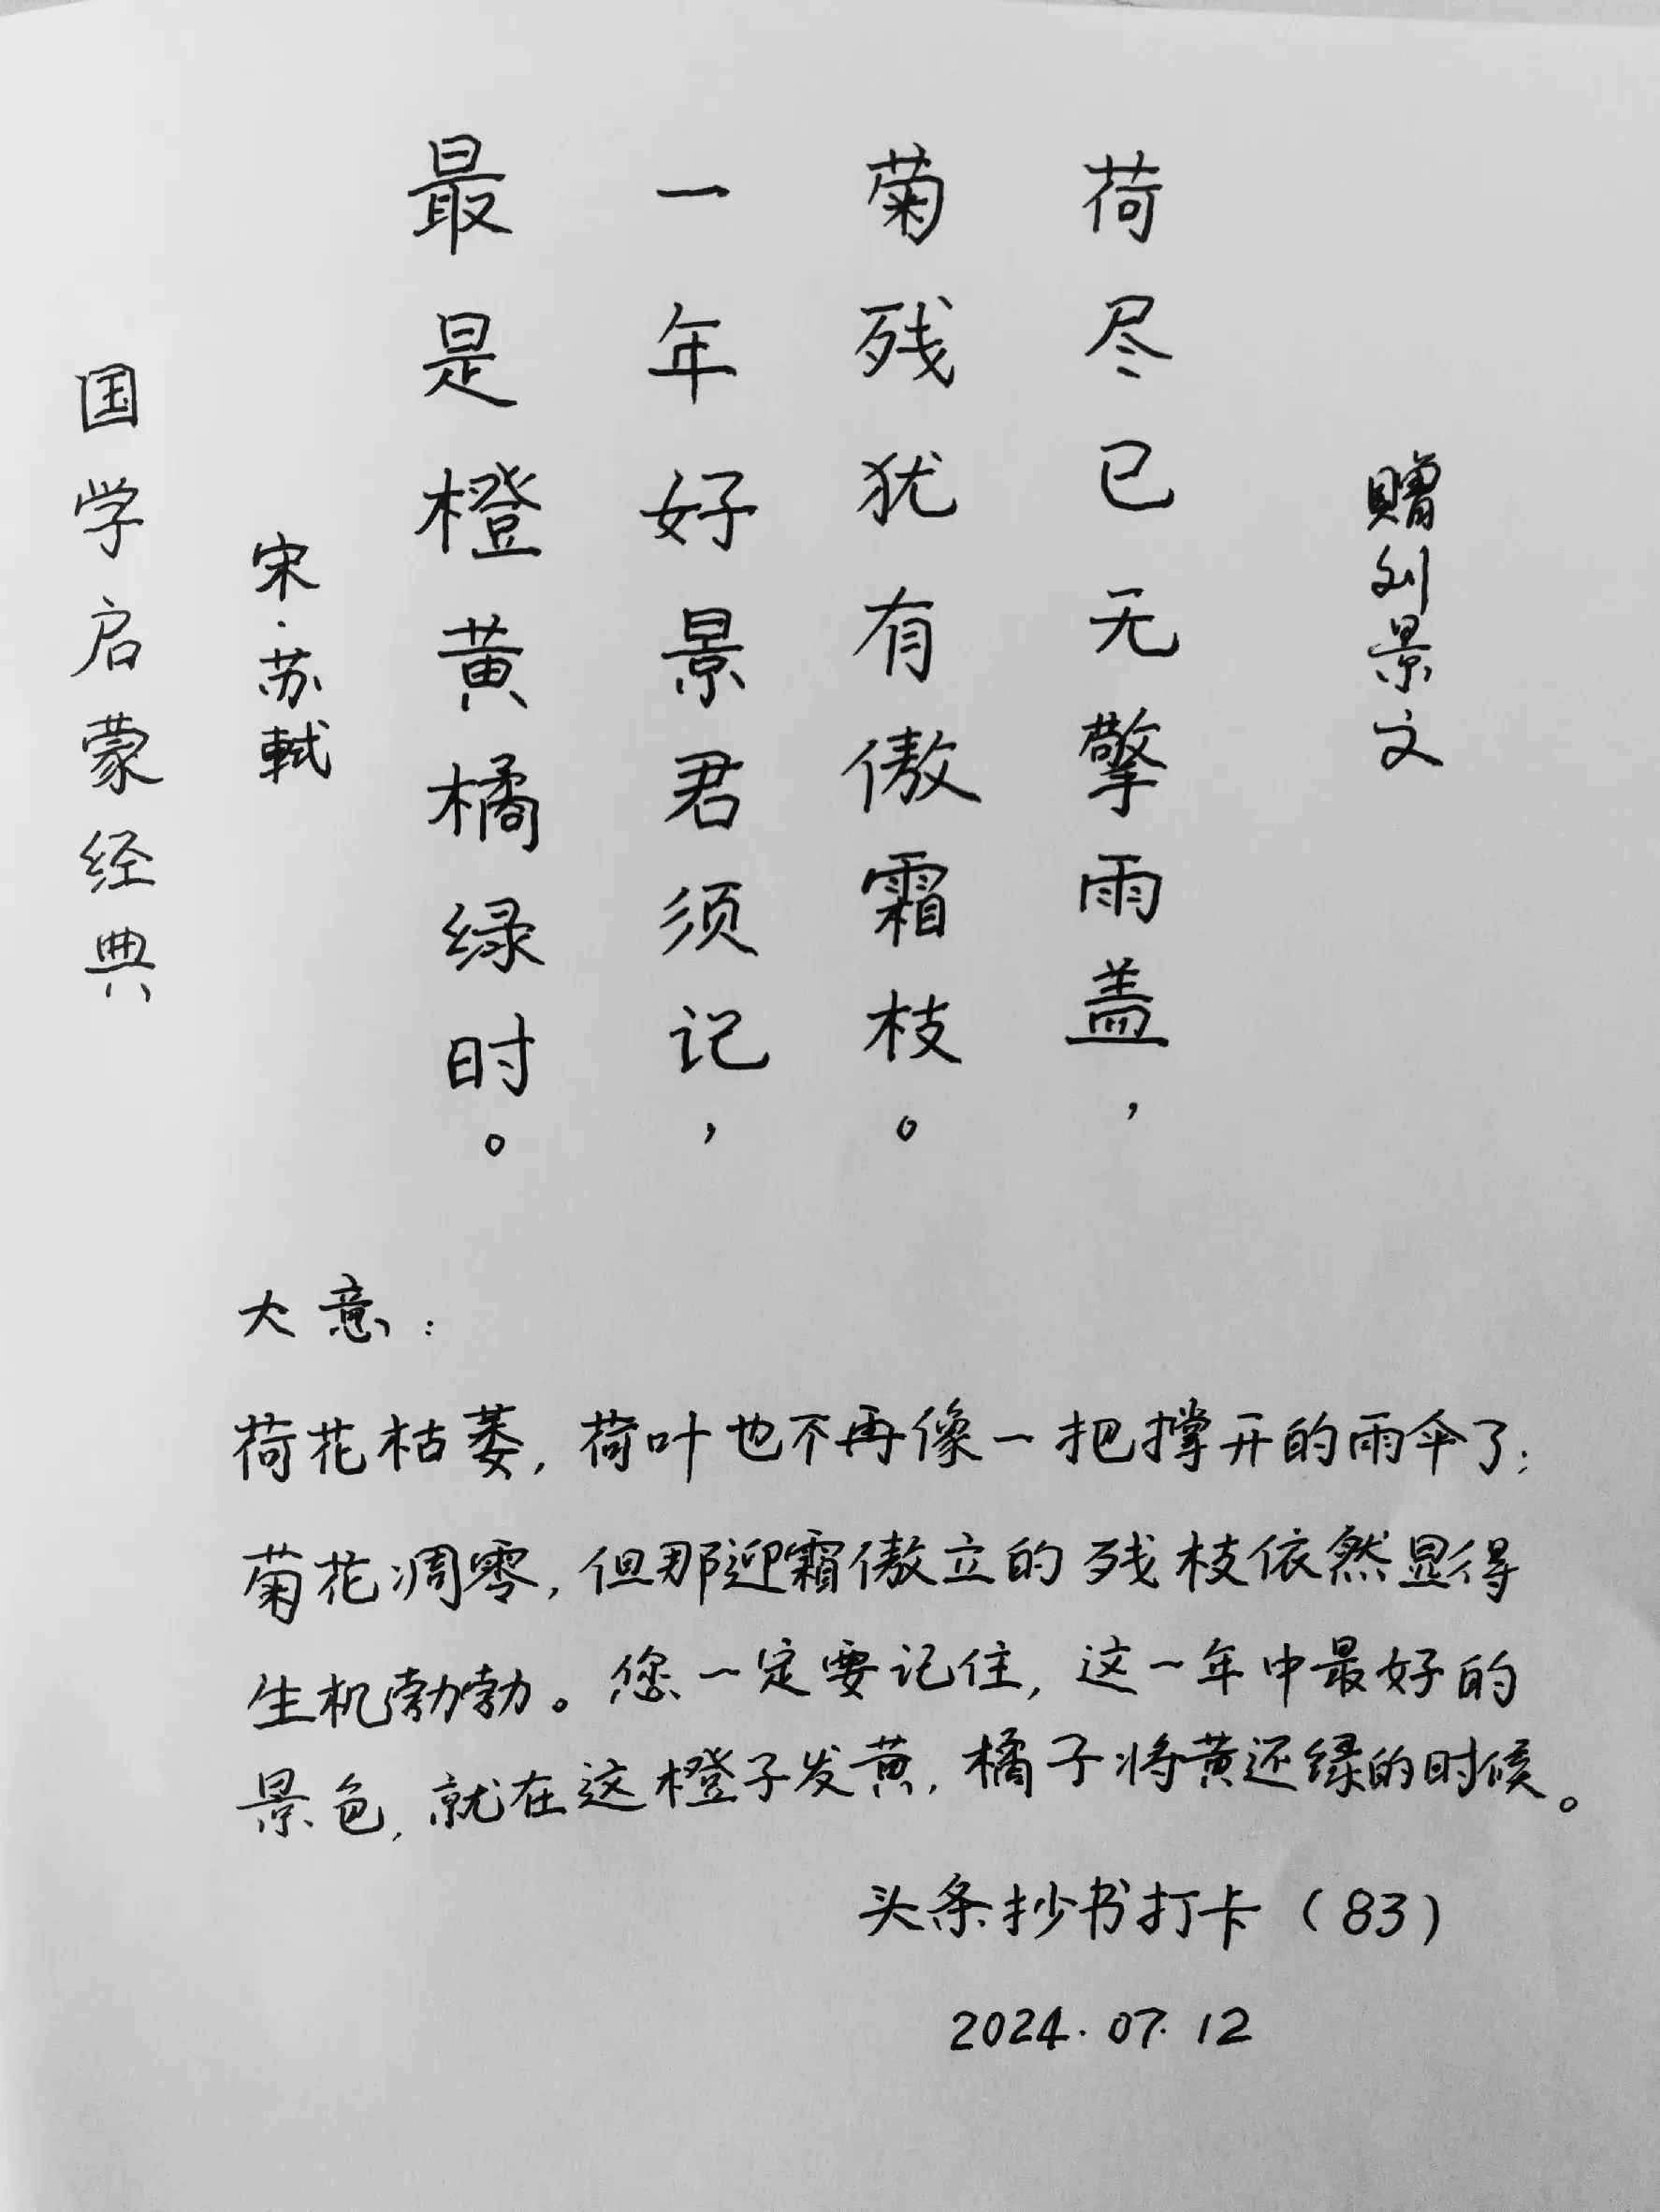 赠刘景文
荷尽已无擎雨盖，
菊残犹有傲霜枝。
一年好景君须记，
最是橙黄橘绿时。
宋·苏轼
国学启蒙经典
大意：
荷花枯萎，荷叶也不再像一把撑开的雨伞了；
菊花凋零，但那迎霜傲立的残枝依然显得
生机勃勃。您一定要记住，这一年中最好的
景色，就在这橙子发黄，橘子将黄还绿的时候。
头条抄书打卡（83）
2024.07.12